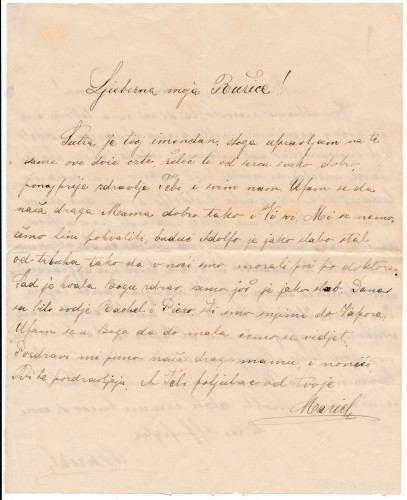 Ljubezna moja Ružice!
Sutra je tvoj imendan, stoga upravljam na te
samo ove dvie crte, želeć te od srca svako dobro,
ponajprije zdravlje Tebi i svim nam. Ufam se da
naša draga Mama dobro tako i Ti vi. Mi se nemo-
žemo liru pohvaliti, buduć Adolfo je jako slabo stal
od trbuha tako da v noći smo morali poć po doktora.
Sad je hvala Bogu zdrav, samo još je jako slab. Danas
su bile ovdje Rachel i Piero, išli smo snjimi do Vapora.
Ufam se u Boga da do mala ćemo se vidjet.
Pozdravi mi puno našu dragu mamu, i nonići.
Svi te pozdravljaju. A Tebi poljubac od tvoje
Mariet